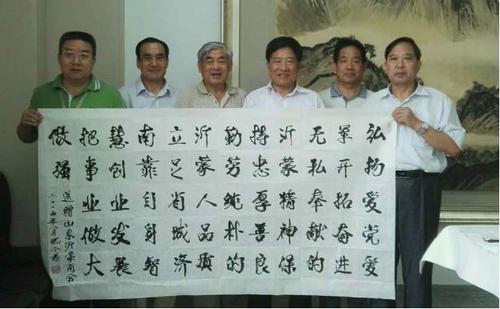 弘扬爱党爱
军开拓奋进
无私奉献的
沂蒙精神保
持忠厚善良
勤劳纯朴的
沂蒙人品质
立足省城济
南靠自身智
慧创业发展
把事业做大
做强
送赠山东沂蒙商会